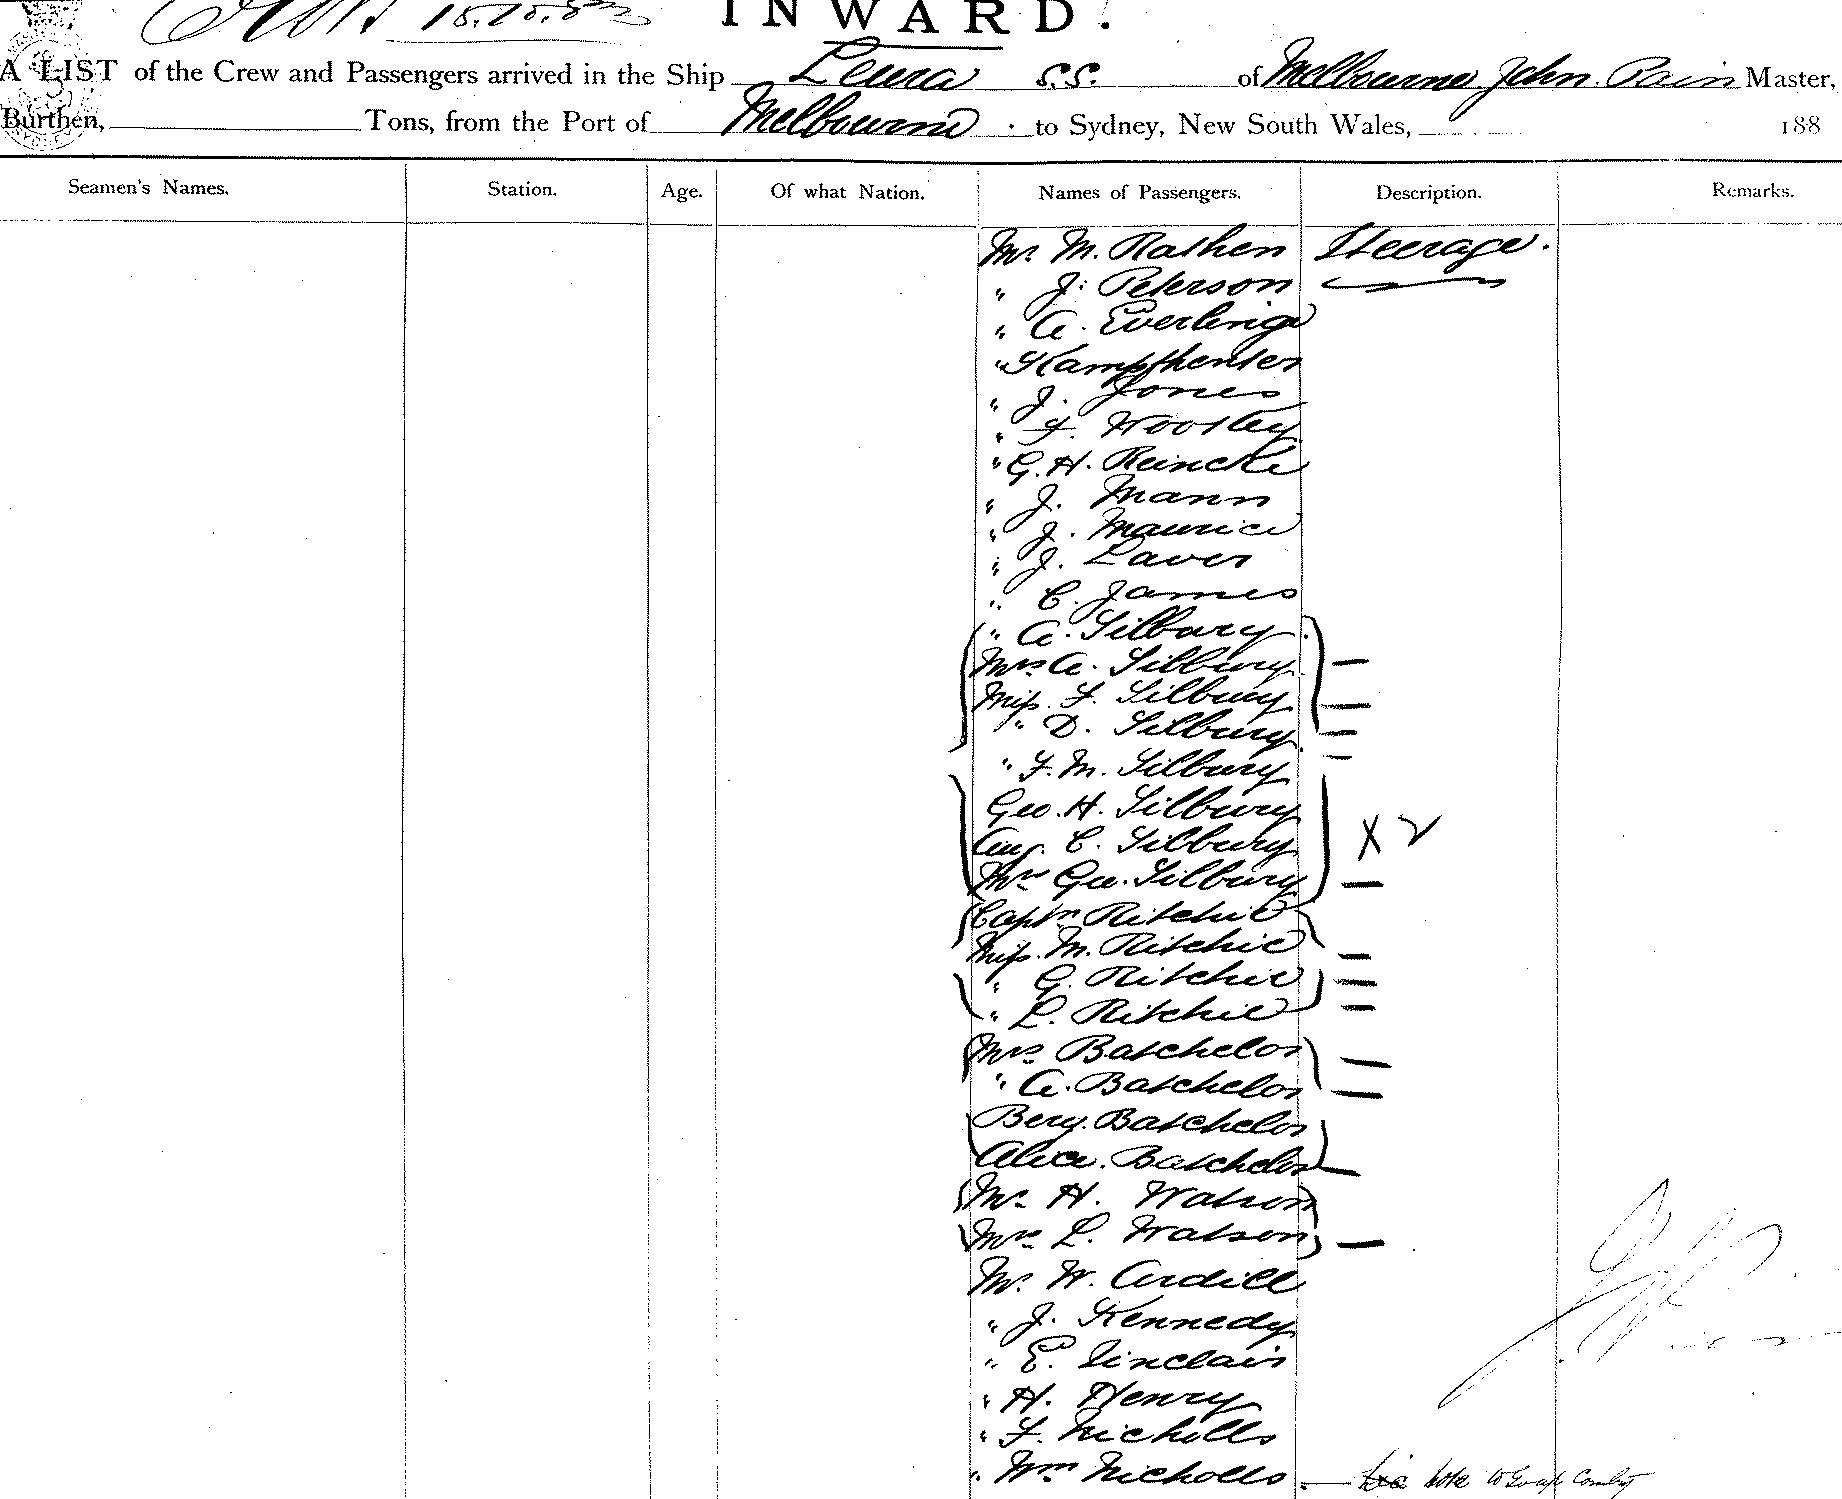 15.10.83 INWARD.
A LIST of the Crew and Passengers arrived in the Ship Leura S.S. of Melbourne John Pain Master,
Burthen, Tons, from the Port of Melbourne to Sydney, New South Wales, 188
Seamen's Names. Station. Age. Of what Nation. Names of Passengers. Description. Remarks.
Mr. M. Rathen Steerage.
" J. Peterson
" A. Everlinge
" Kampfhenter
" J. Jones
" F. Wootley
" G. H. Reincke
" J. Mann
" J. Maurice
" J. Laver
" C. James
" A. Silbury
Mrs A. Silbury
Miss F. Silbury
" D. Silbury
" F. M. Silbury
Geo. H. Silbury
Aug. C. Silbury X 2
Mrs Geo. Silbury
Captn Ritchie
Miss. M. Ritchie
" G. Ritchie
" L. Ritchie
Mrs Batchelor
" A. Batchelor
Benj. Batchelor
Alice. Batchelor
Mr. H. Watson
Mrs L. Watson
Mr. W. Cardill
" J. Kennedy
" E. Sinclair
" H. Henry
" F. Nicholls
" Wm Nicholls note to